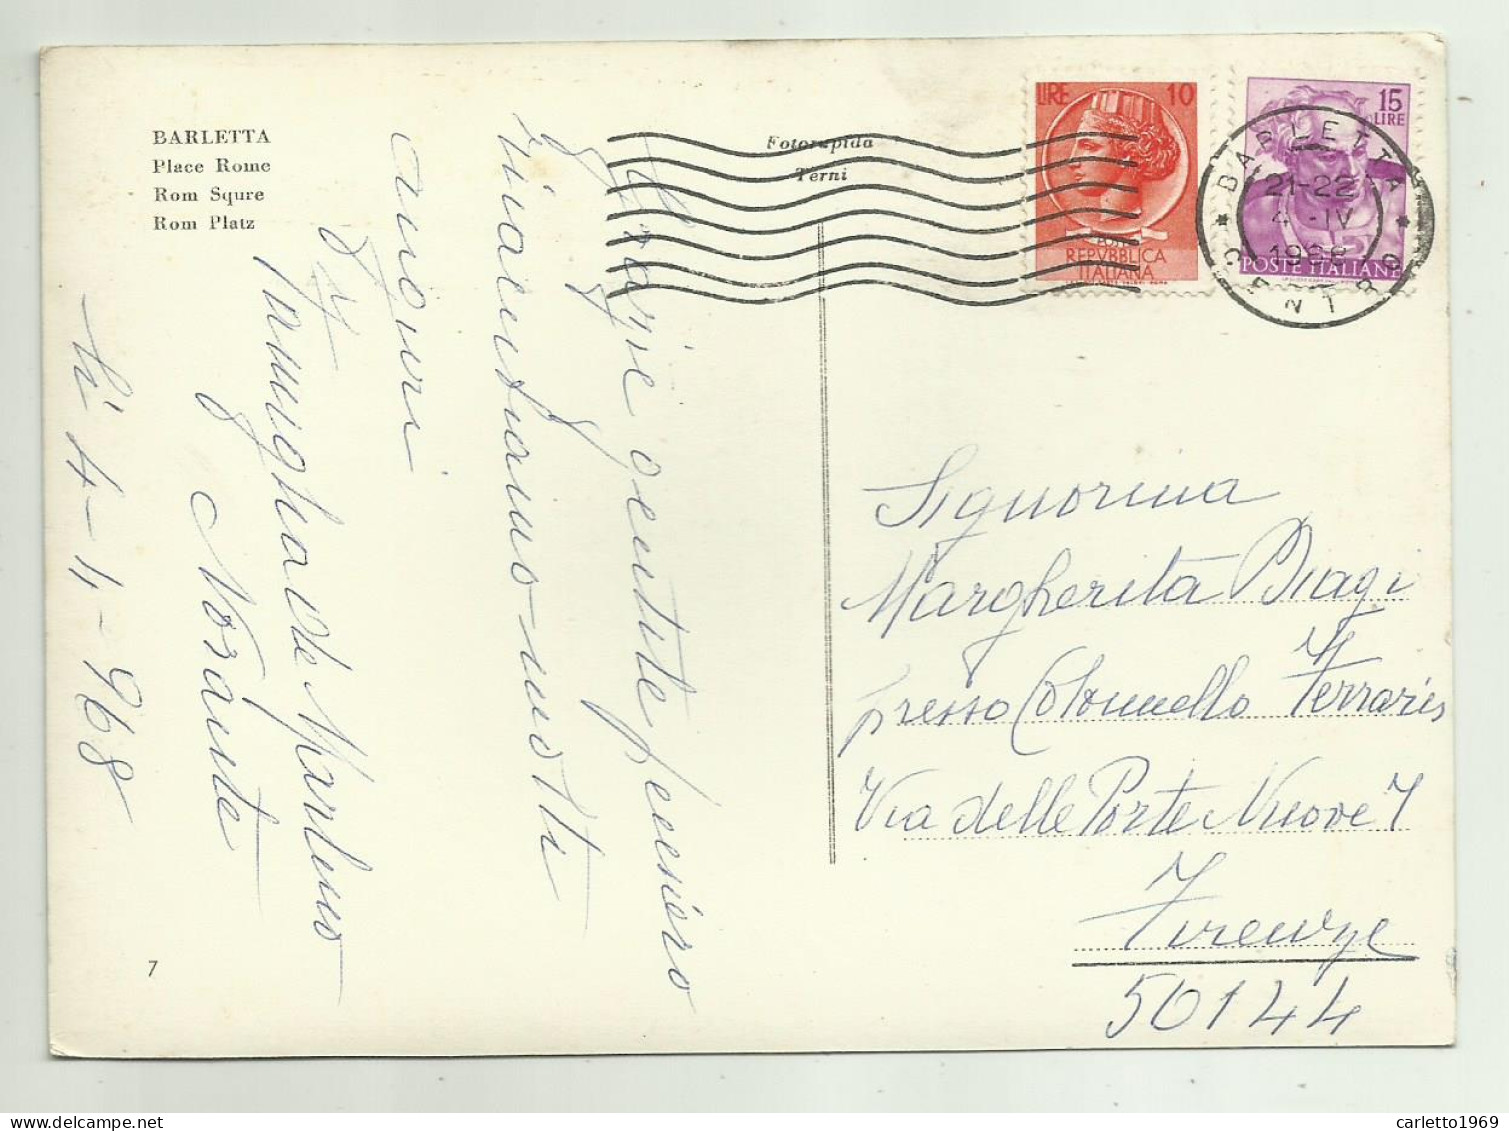 BARLETTA
Place Rome
Rom Squre
Rom Platz
Fotorapida
Terni
LIRE 10
REPVBBLICA
ITALIANA
15
LIRE
POSTE ITALIANE
BARLETTA CENTRO
21-22
4-IV
1968
Grazie gentile pensiero
ricambiamo nostri
auguri
Famiglia de Martino
Morante
li 4-4-968
Signorina
Margherita Biagi
presso Colonnello Ferraris
Via delle Porte Nuove 7
Firenze
50144
7
carletto1969